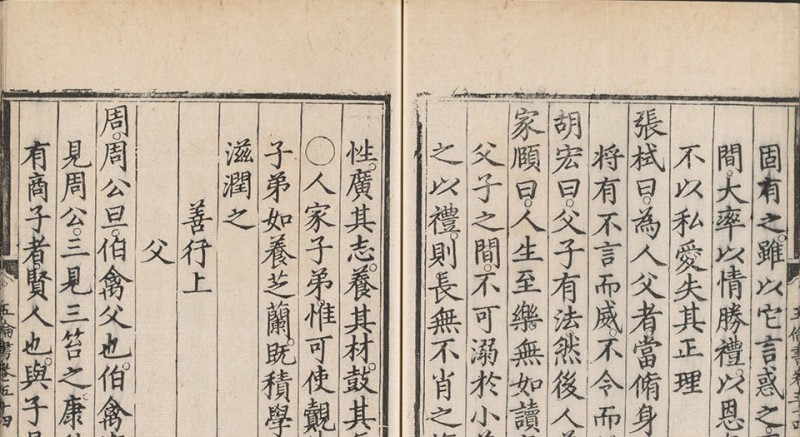 固有之。雖以它言惑之。
間。大率以情勝禮。以恩
不以私愛失其正理
張栻曰。為人父者當脩身
將有不言而威。不令而
胡宏曰。父子有法然後人
家頤曰。人生至樂。無如讀
父子之間。不可溺於小
之以禮。則長無不肖之
性。廣其志。養其材。鼓其
○人家子弟。惟可使覿
子弟如養芝蘭。既積學
滋潤之
善行上
父
周。周公旦。伯禽父也。伯禽
見周公。三見三笞之。康
有商子者。賢人也。與子
五倫書卷五十四